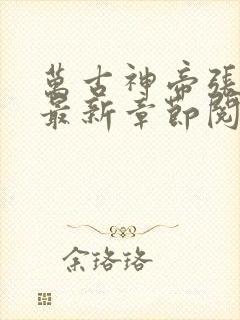 萬古神帝張
最新章節閱
余珞珞